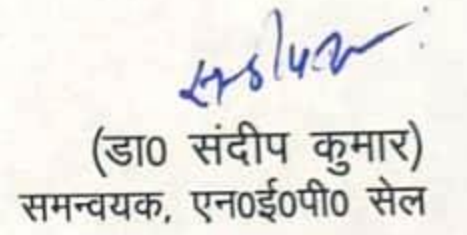 (डा0 संदीप कुमार)
समन्वयक, एन0ई0पी0 सेल